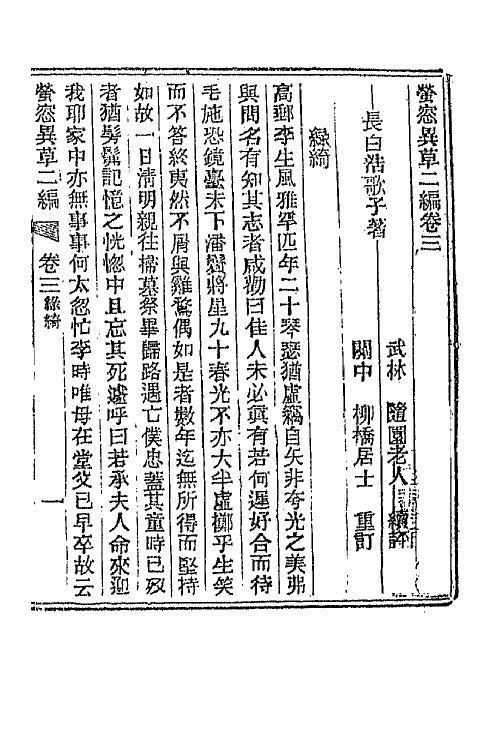 螢窓異草二編卷三
長白浩歌子著
武林　隨園老人　續評
關中　柳橋居士　重訂
綠綺
高郵李生風雅罕匹年二十琴瑟猶虛竊自矢非夸光之美弗
與問名有知其志者咸勸曰佳人未必眞有若何遲好合而待
毛施恐鏡臺未下潘鬢將星九十春光不亦大半虛擲乎生笑
而不答終夷然不屑與雞鶩偶如是者數年迄無所得而堅持
如故一日淸明親往掃墓祭畢歸路遇亡僕忠蓋其童時已歿
者猶髣髴記憶之恍惚中且忘其死遽呼曰若承夫人命來迎
我耶家中亦無事事何太怱忙李時唯母在堂父已早卒故云
螢窓異草二編　卷三綠綺　一